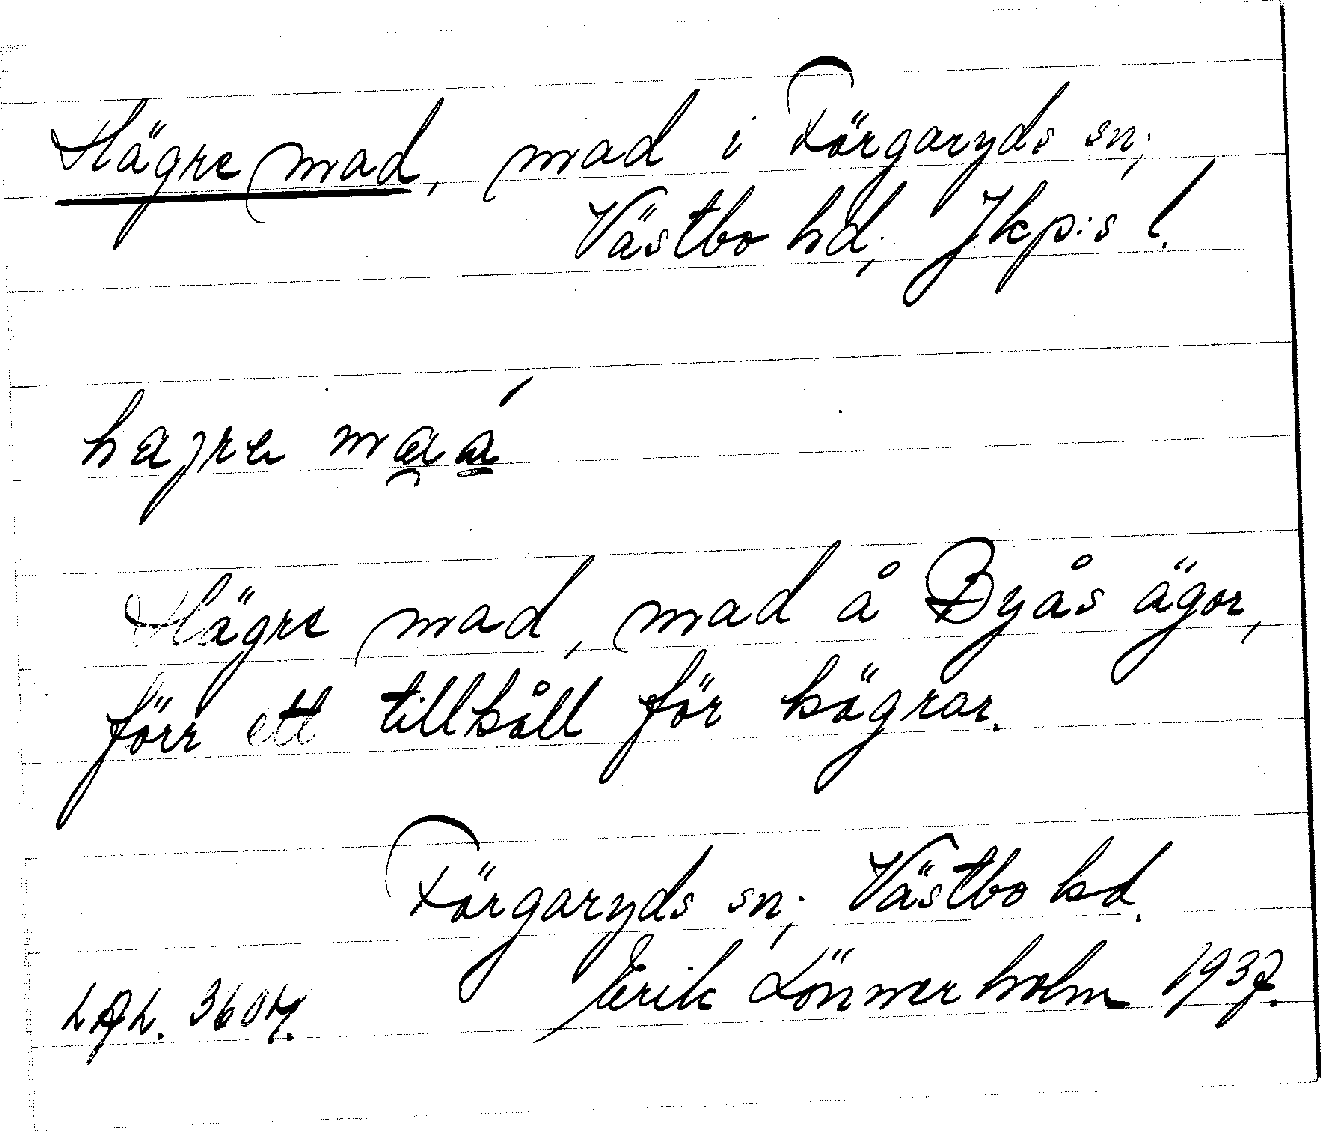 Hägre mad, mad i Färgaryds sn;
Västbo hd; Jkp:s l.
hagra maá
Hägre mad, mad å Byås ägor,
förr ett tillhåll för hägrar.
Färgaryds sn; Västbo hd.
Erik Lönnerholm 1937.